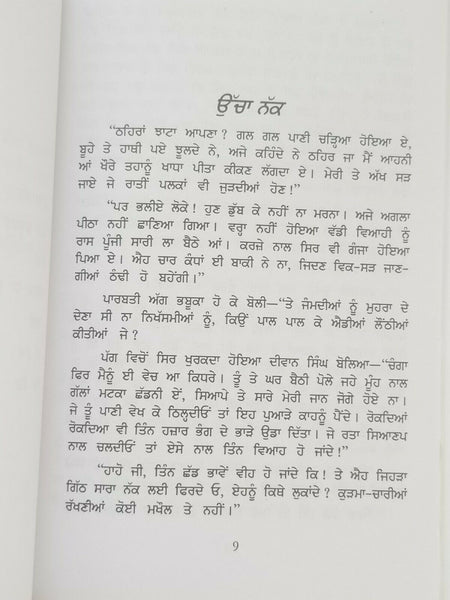 ਉੱਚਾ ਨੱਕ
“ਠਹਿਰਾਂ ਝਾਟਾ ਆਪਣਾ ? ਗਲ ਗਲ ਪਾਣੀ ਚੜ੍ਹਿਆ ਹੋਇਆ ਏ,
ਬੂਹੇ ਤੇ ਹਾਥੀ ਪਏ ਝੂਲਦੇ ਨੇ, ਅਜੇ ਕਹਿੰਦੇ ਨੇ ਠਹਿਰ ਜਾ ਮੈਂ ਆਹਨੀ
ਆਂ ਖੌਰੇ ਤਹਾਨੂੰ ਖਾਧਾ ਪੀਤਾ ਕੀਕਣ ਲੱਗਦਾ ਏ। ਮੇਰੀ ਤੇ ਅੱਖ ਸੜ
ਜਾਏ ਜੇ ਰਾਤੀਂ ਪਲਕਾਂ ਵੀ ਜੁੜਦੀਆਂ ਹੋਣ !”
“ਪਰ ਭਲੀਏ ਲੋਕੇ ! ਹੁਣ ਡੁੱਬ ਕੇ ਨਹੀਂ ਨਾ ਮਰਨਾ। ਅਜੇ ਅਗਲਾ
ਪੀਠਾ ਨਹੀਂ ਛਾਣਿਆ ਗਿਆ। ਵਰ੍ਹਾ ਨਹੀਂ ਹੋਇਆ ਵੱਡੀ ਵਿਆਹੀ ਨੂੰ
ਰਾਸ ਪੂੰਜੀ ਸਾਰੀ ਲਾ ਬੈਠੇ ਆਂ। ਕਰਜ਼ੇ ਨਾਲ ਸਿਰ ਵੀ ਗੰਜਾ ਹੋਇਆ
ਪਿਆ ਏ। ਐਹ ਚਾਰ ਕੰਧਾਂ ਈ ਬਾਕੀ ਨੇ ਨਾ, ਜਿਦਣ ਵਿਕ-ਸੜ ਜਾਣ-
ਗੀਆਂ ਠੰਢੀ ਹੋ ਬਹੇਂਗੀ।”
ਪਾਰਬਤੀ ਅੱਗ ਭਬੂਕਾ ਹੋ ਕੇ ਬੋਲੀ—“ਤੇ ਜੰਮਦੀਆਂ ਨੂੰ ਮੁਹਰਾ ਦੇ
ਦੇਣਾ ਸੀ ਨਾ ਨਿਖਸਮੀਆਂ ਨੂੰ, ਕਿਉਂ ਪਾਲ ਪਾਲ ਕੇ ਐਡੀਆਂ ਲੌਂਠੀਆਂ
ਕੀਤੀਆਂ ਜੇ ?
ਪੱਗ ਵਿਚੋਂ ਸਿਰ ਖੁਰਕਦਾ ਹੋਇਆ ਦੀਵਾਨ ਸਿੰਘ ਬੋਲਿਆ—“ਚੰਗਾ
ਫਿਰ ਮੈਨੂੰ ਈ ਵੇਚ ਆ ਕਿਧਰੇ। ਤੂੰ ਤੇ ਘਰ ਬੈਠੀ ਪੋਲੇ ਜਹੇ ਮੂੰਹ ਨਾਲ
ਗੱਲਾਂ ਮਟਕਾ ਛੱਡਨੀ ਏਂ, ਸਿਆਪੇ ਤੇ ਸਾਰੇ ਮੇਰੀ ਜਾਨ ਜੋਗੇ ਹੋਏ ਨਾ।
ਜੇ ਤੂੰ ਪਾਣੀ ਵੇਖ ਕੇ ਠਿਲ੍ਹਦੀਓਂ ਤਾਂ ਇਹ ਪੁਆੜੇ ਕਾਹਨੂੰ ਪੈਂਦੇ। ਰੋਕਦਿਆਂ
ਰੋਕਦਿਆ ਵੀ ਤਿੰਨ ਹਜ਼ਾਰ ਭੰਗ ਦੇ ਭਾੜੇ ਉਡਾ ਦਿੱਤਾ। ਜੇ ਰਤਾ ਸਿਆਣਪ
ਨਾਲ ਚਲਦੀਓਂ ਤਾਂ ਏਸੇ ਨਾਲ ਤਿੰਨ ਵਿਆਹ ਹੋ ਜਾਂਦੇ !”
“ਹਾਹੋ ਜੀ, ਤਿੰਨ ਛੱਡ ਭਾਵੇਂ ਵੀਹ ਹੋ ਜਾਂਦੇ ਕਿ ! ਤੇ ਐਹ ਜਿਹੜਾ
ਗਿੱਠ ਸਾਰਾ ਨੱਕ ਲਈ ਫਿਰਦੇ ਓ, ਏਹਨੂੰ ਕਿਥੇ ਲੁਕਾਂਦੇ ? ਕੁੜਮਾ-ਚਾਰੀਆਂ
ਰੱਖਣੀਆਂ ਕੋਈ ਮਖੌਲ ਤੇ ਨਹੀਂ।”
9